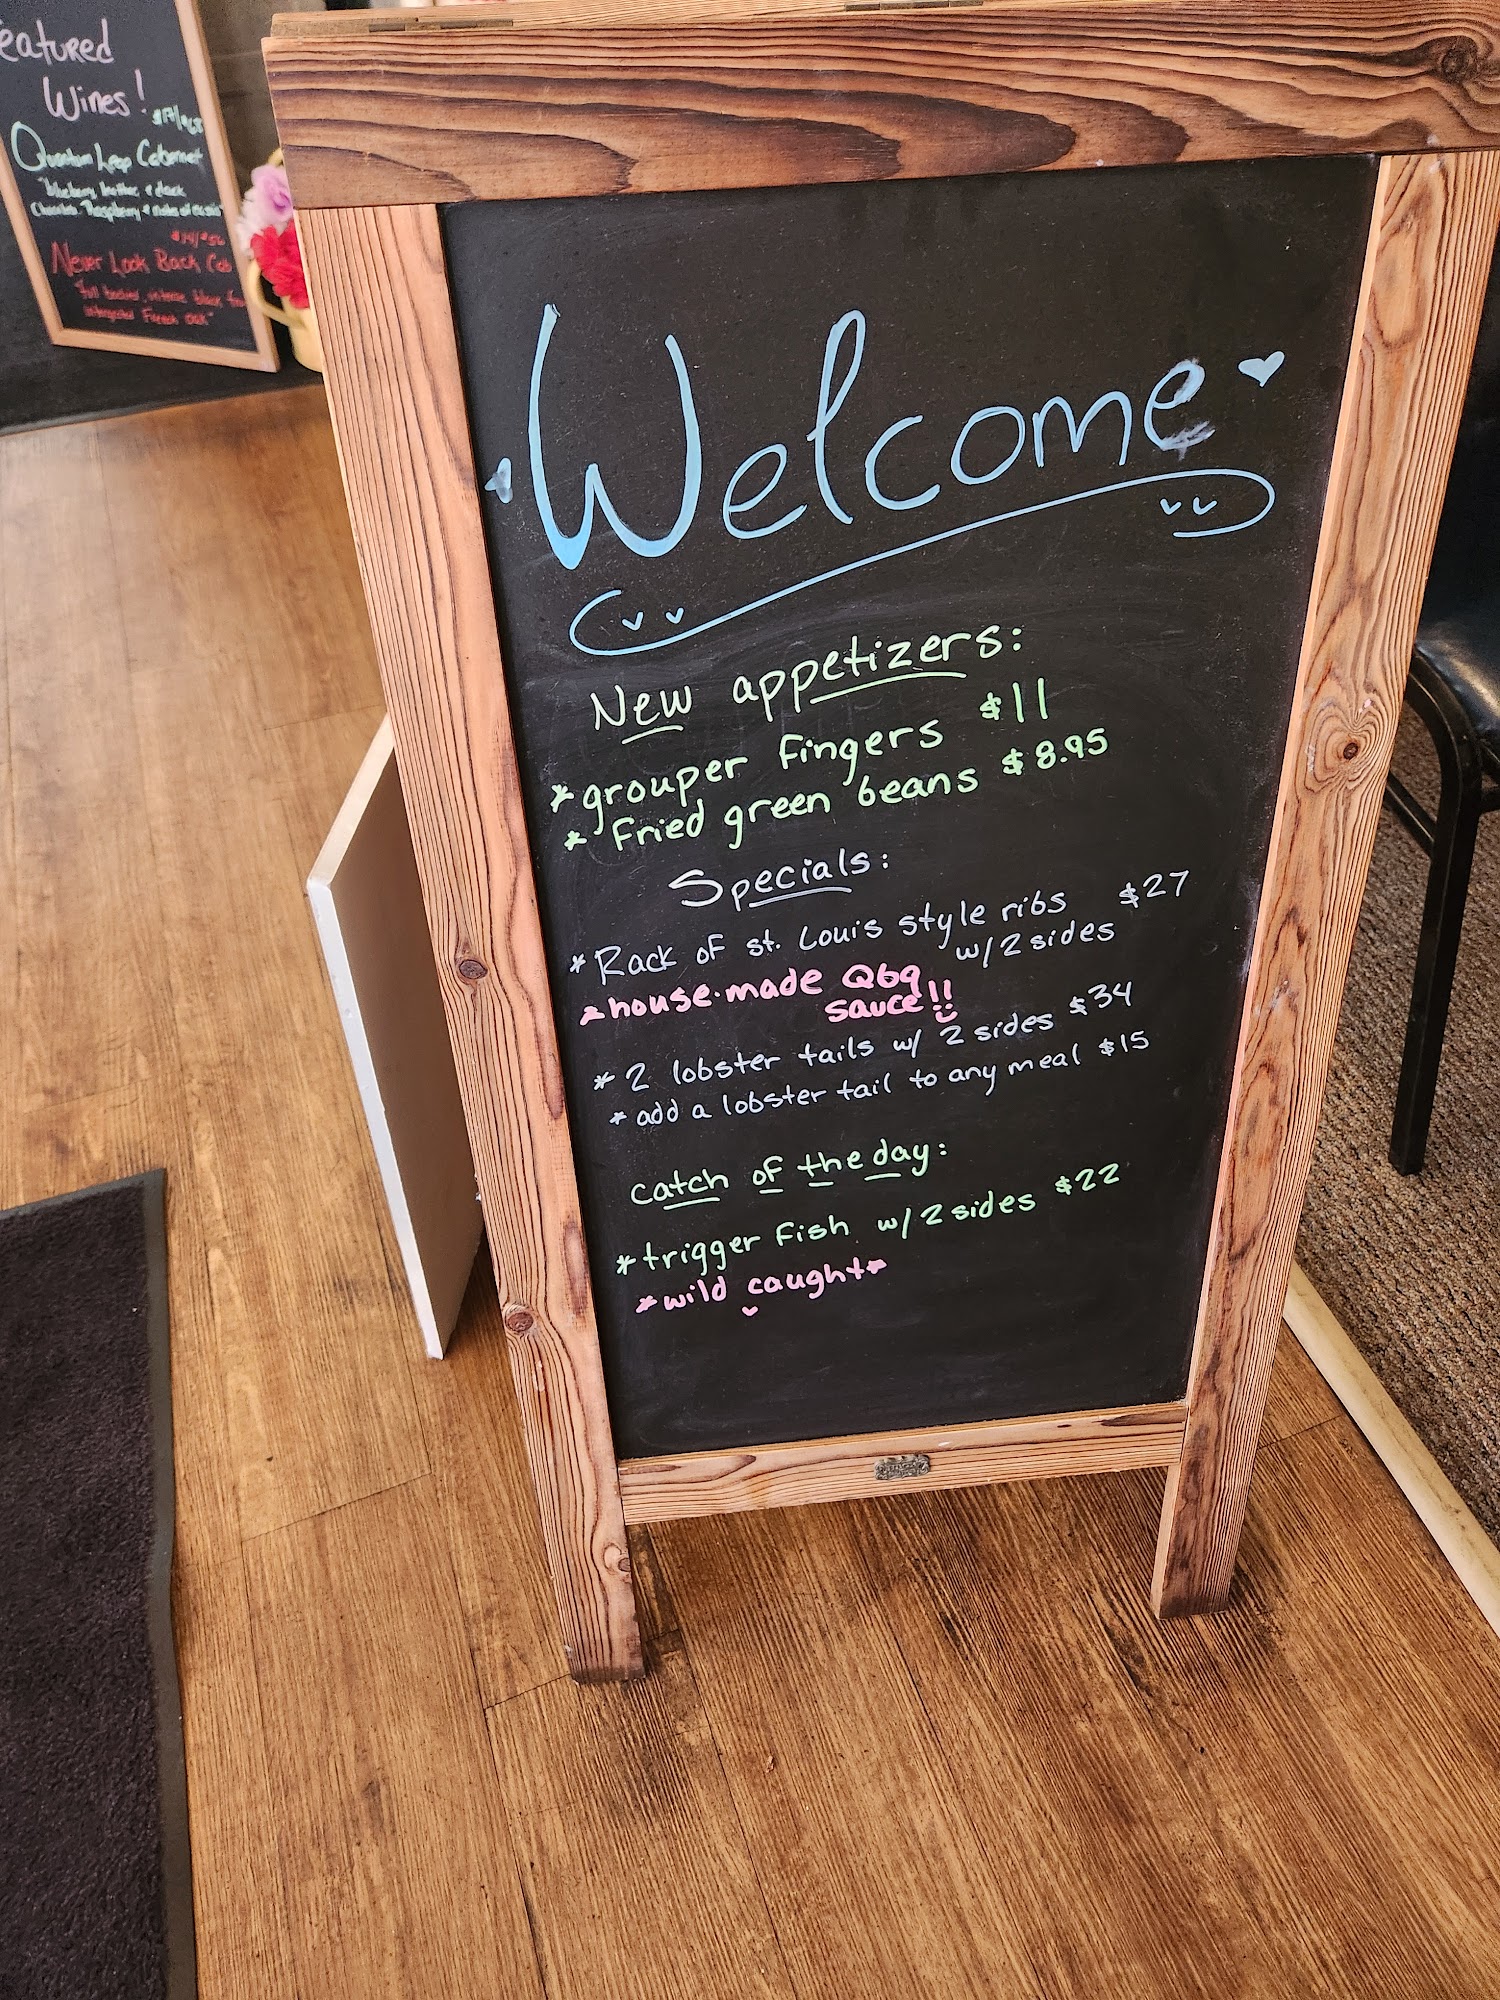 eatured
Wines!
$17/$68
Quantum Leap Cabernet
"blueberry, leather, & dark
Chocolate. Raspberry &
$14/$56
Never Look Back Cab
full bodied, intense black
French oak"
Welcome
New appetizers:
*grouper fingers $11
* Fried green beans $8.95
Specials:
*Rack of st. Louis style ribs $27
w/2 sides
*house-made Qbq
sauce!!
*2 lobster tails w/ 2 sides $34
*add a lobster tail to any meal $15
catch of the day:
*trigger Fish w/2 sides $22
*wild caught*